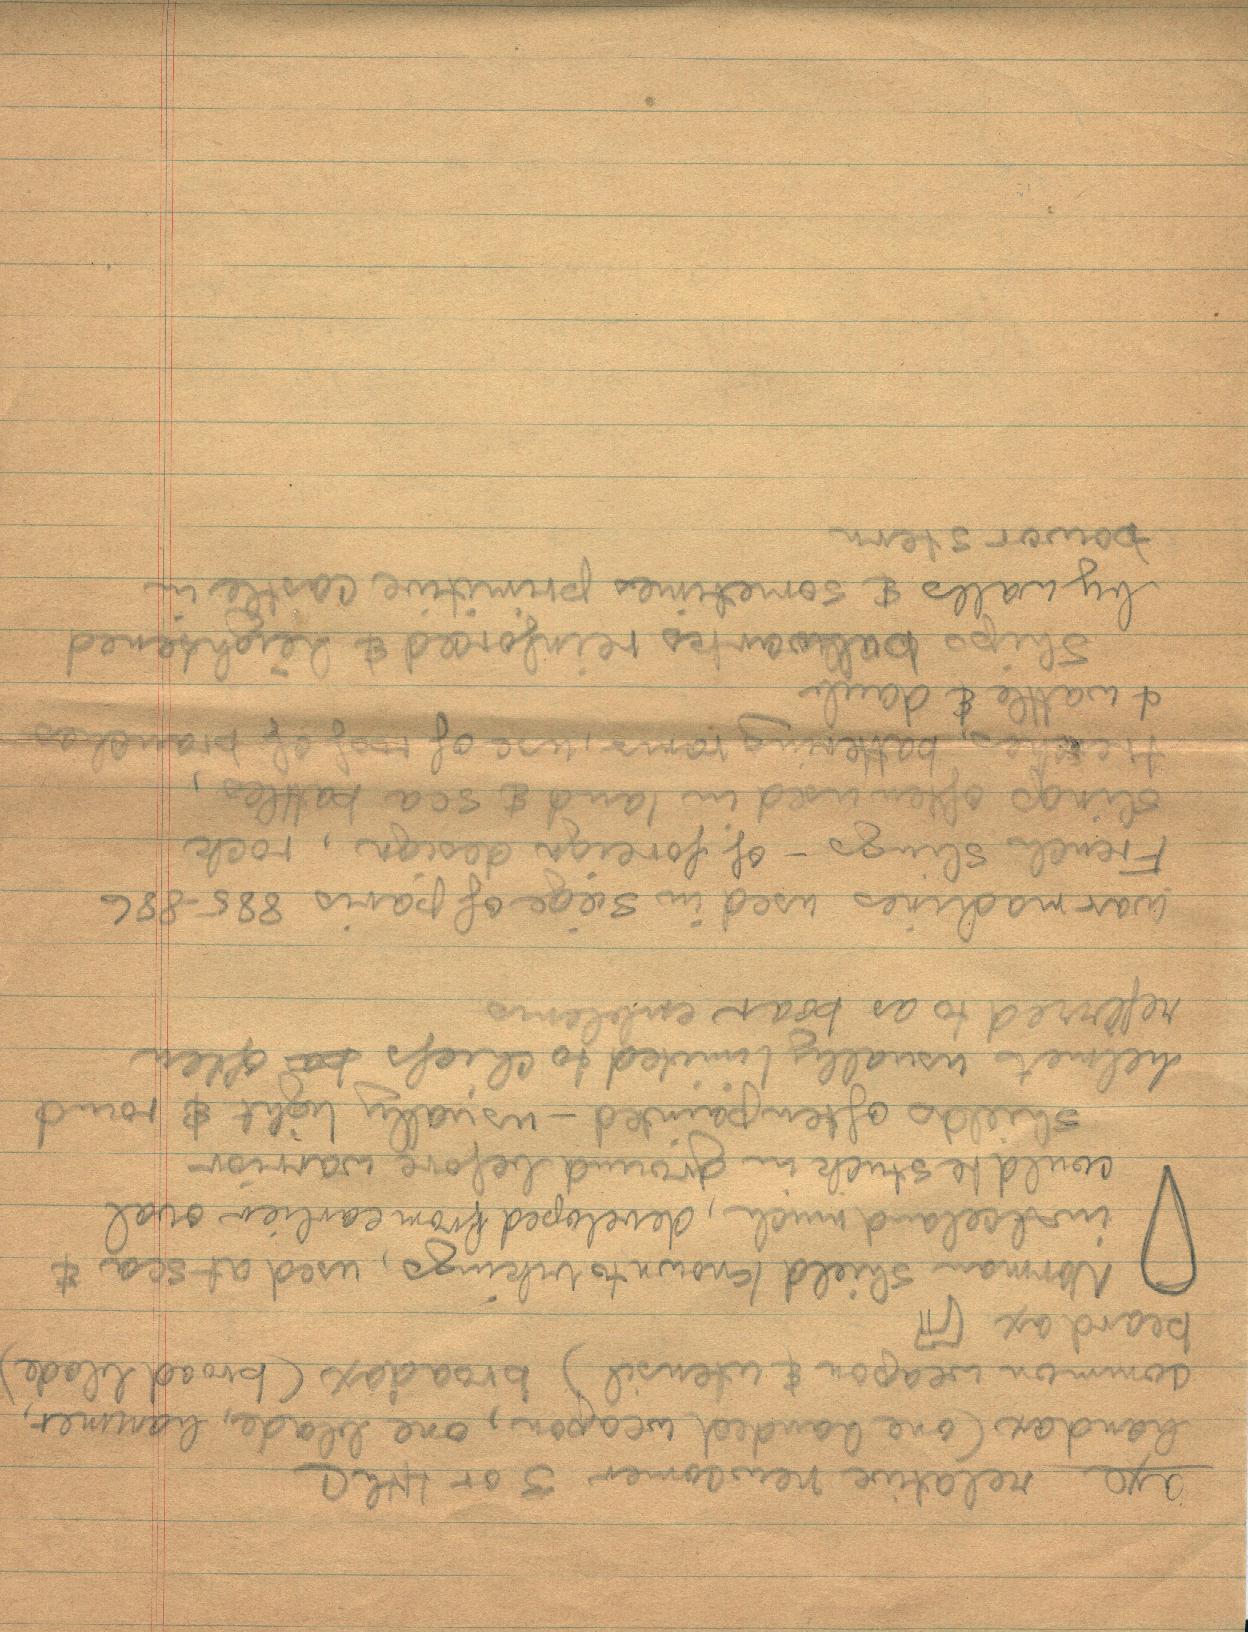 axe relative newcomer 3 or 4th C
handax (one handed weapon, one blade, hammer,
common weapon & utensil) broadax (broad blade)
beard ax
Norman shield known to vikings, used at sea &
in Iceland much, developed from earlier oval
could be stuck in ground before warrior
shields often painted - usually light & round
helmets usually limited to chiefs often
referred to as boar emblems
war machines used in siege of paris 885-886
French slings - of foreign design, rock
slings often used in land & sea battles,
trenches, battering rams, use of roof of branches
& wattle & daub
Ships bulwarks reinforced & heightened
by walls & sometimes primitive castle in
bow or stern